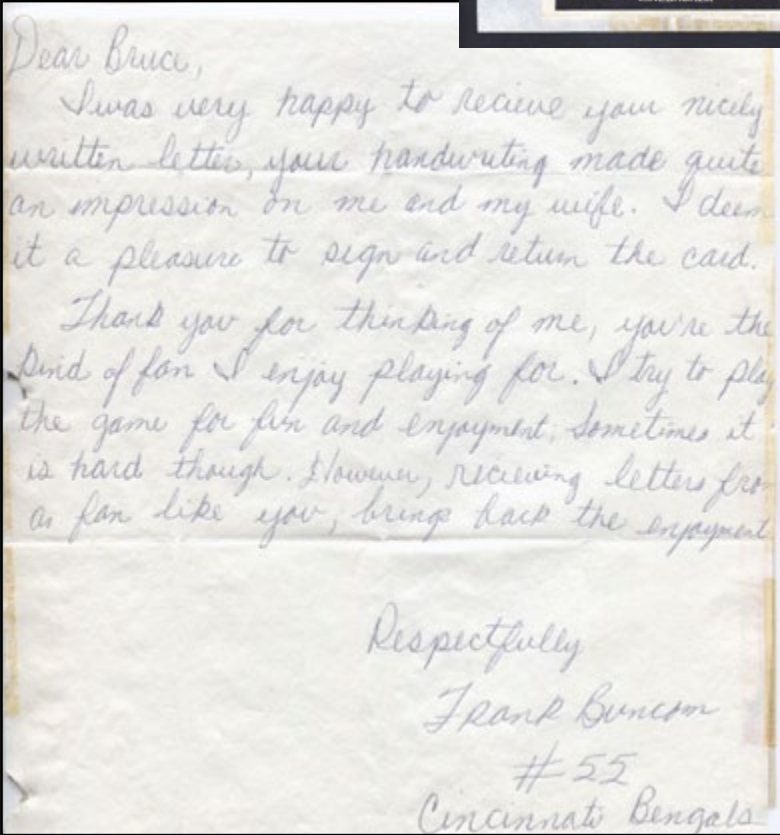 Dear Bruce,
I was very happy to recieve your nicely
written letter, your handwriting made quite
an impression on me and my wife. I deem
it a pleasure to sign and return the card.
Thank you for thinking of me, you're the
kind of fan I enjoy playing for. I try to play
the game for fun and enjoyment, Sometimes it
is hard though. However, recieving letters from
a fan like you, brings back the enjoyment
Respectfully
Frank Buncom
#55
Cincinnati Bengals